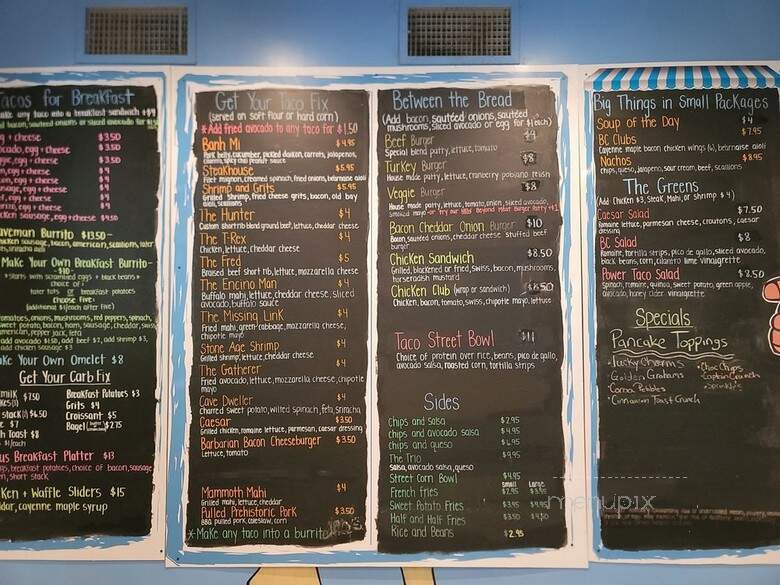 Tacos for Breakfast
make any taco into a breakfast sandwich +$4
egg + cheese $3.50
avocado, egg + cheese $3.50
egg, egg + cheese $3.50
egg + cheese $
sausage, egg + cheese $
egg + cheese
chicken sausage, egg + cheese $4.50
Caveman Burrito $13.50
chicken sausage, bacon, american, scallions, tater
Make Your Own Breakfast Burrito-
$10
+starts with scrambled eggs + black beans+
choice of
tater tots or breakfast potatoes
Choose five:
(additional $1 each after five)
tomatoes, onions, mushrooms, red peppers, spinach,
sweet potato, bacon, ham, sausage, cheddar, swiss,
american, pepper jack, feta
add avocado $1.50, add beef $2, add shrimp $3,
add chicken sausage $3
Make Your Own Omelet $8
Get Your Carb Fix
$7.50
Breakfast Potatoes $3
Grits $4
stack $6.50
Croissant $5
Bagel $2.75
Toast $8
Breakfast Platter $13
eggs, breakfast potatoes, choice of bacon, sausage
short stack
Chicken + Waffle Sliders $15
cheddar, cayenne maple syrup
Get Your Taco Fix
(served on soft flour or hard corn)
*Add fried avocado to any taco for $1.50
Banh Mi $4.95
Pork belly, cucumber, pickled daikon, carrots, jalapenos,
cilantro, spicy chili peanut sauce
Steakhouse $5.95
Filet mignon, creamed spinach, fried onions, bearnaise aioli
Shrimp and Grits $5.95
Grilled shrimp, fried cheese grits, bacon, old bay
aioli, scallions
The Hunter $4
Custom short rib blend ground beef, lettuce, cheddar cheese
The T-Rex $4
Chicken, lettuce, cheddar cheese
The Fred $5
Braised beef short rib, lettuce, mozzarella cheese
The Encino Man $4
Buffalo mahi, lettuce, cheddar cheese, sliced
avocado, buffalo sauce
The Missing Link $4
Fried mahi, green cabbage, mozzarella cheese,
chipotle mayo
Stone Age Shrimp $4
Grilled shrimp, lettuce, cheddar cheese
The Gatherer $4
Fried avocado, lettuce, mozzarella cheese, chipotle
mayo
Cave Dweller $4
Charred sweet potato, wilted spinach, feta, sriracha
Caesar $3.50
Grilled chicken, romaine lettuce, parmesan, caesar dressing
Barbarian Bacon Cheeseburger $3.50
Lettuce, tomato
Mammoth Mahi $4
Grilled mahi, lettuce, cheddar
Pulled Prehistoric Pork $3.50
BBQ pulled pork, coleslaw, corn
*Make any taco into a burrito
Between the Bread
(Add bacon, sautéed onions, sautéed
mushrooms, sliced avocado or egg for $1 each)
Beef Burger $9
Special blend patty, lettuce, tomato
Turkey Burger $8
House made patty, lettuce, cranberry poblano relish
Veggie Burger $8
House made patty, lettuce, tomato, onion, sliced avocado,
smoked mayo -or try our new Beyond Meat Burger Patty +$1
Bacon Cheddar Onion Burger $10
Bacon, sauteed onions, cheddar cheese stuffed beef
burger
Chicken Sandwich $8.50
Grilled, blackened or fried, swiss, bacon, mushrooms,
horseradish mustard
Chicken Club (wrap or sandwich) $8.50
Chicken, bacon, tomato, swiss, chipotle mayo, lettuce
Taco Street Bowl $11
Choice of protein over rice, beans, pico de gallo,
avocado salsa, roasted corn, tortilla strips
Sides
Chips and salsa $2.95
Chips and avocado salsa $4.95
Chips and queso $4.95
The Trio $6.95
Salsa, avocado salsa, queso
Street Corn Bowl $4.95
Small Large
French Fries $2.95 $3.95
Sweet Potato Fries $3.95
Half and Half Fries $3.50 $4.50
Rice and Beans $2.95
Big Things in Small Packages
Soup of the Day $4
BC Clubs $7.95
Cayenne maple bacon chicken wings (6), bearnaise aioli
Nachos $8.95
Chips, queso, jalapeno, sour cream, beef, scallions
The Greens
(Add Chicken $3, Steak, Mahi, or Shrimp $4)
Caesar Salad $7.50
Romaine lettuce, parmesan cheese, croutons, caesar
dressing
BC Salad $8
Romaine, tortilla strips, pico de gallo, sliced avocado,
black beans, corn, cilantro lime vinaigrette
Power Taco Salad $8.50
Spinach, romaine, quinoa, sweet potato, green apple,
avocado, honey cider vinaigrette
Specials
Pancake Toppings
•Lucky Charms •Choc Chips
•Golden Grahams •Captain Crunch
•Cocoa Pebbles •Sprinkles
•Cinnamon Toast Crunch
menupix